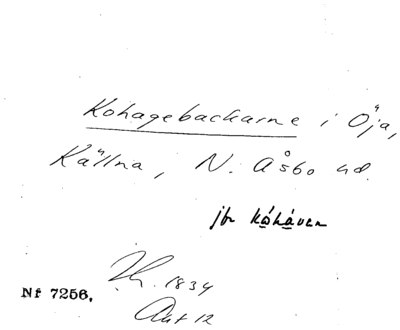 Kohagebackarne i Öja,
Källna, N. Åsbo hd.
jbr kåhåven
Nf 7256.
Zh. 1834
Akt 12